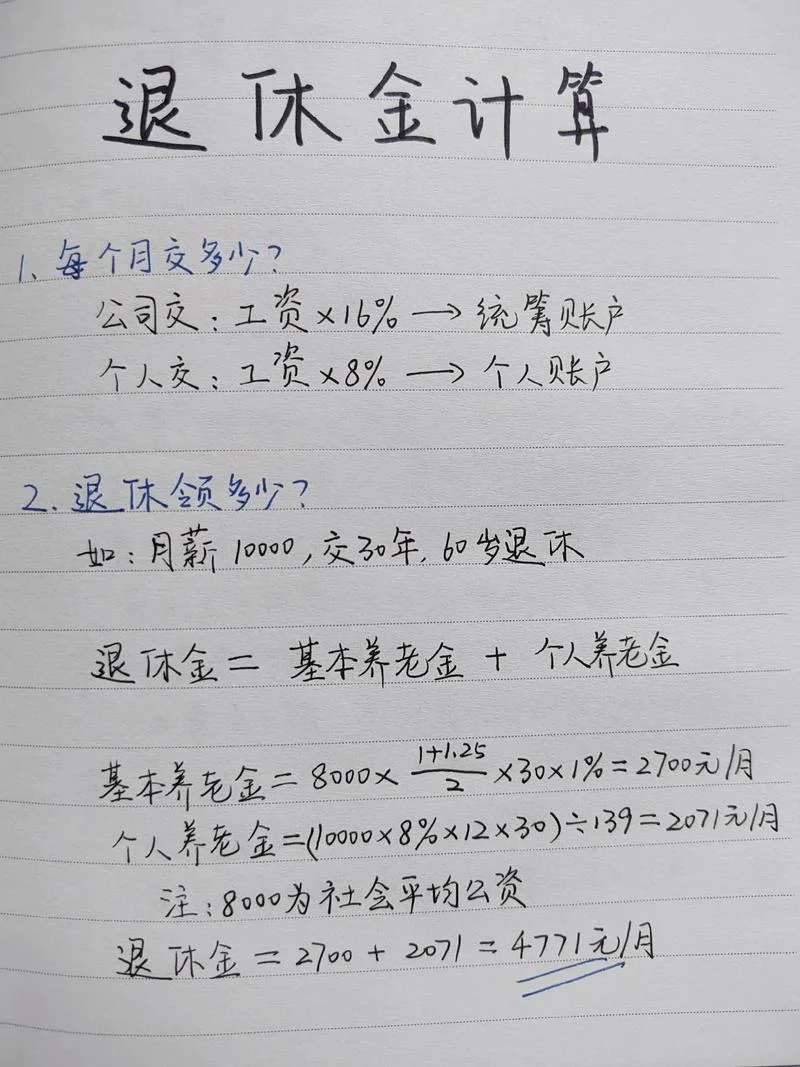 退休金计算
1、每个月交多少?
公司交:工资×16% → 统筹账户
个人交:工资×8% → 个人账户
2、退休领多少?
如:月薪10000,交30年,60岁退休
退休金 = 基本养老金 + 个人养老金
基本养老金 = 8000 × (1+1.25)/2 × 30 × 1% = 2700元/月
个人养老金 = (10000×8%×12×30)÷139 = 2071元/月
注:8000为社会平均公资
退休金 = 2700 + 2071 = 4771元/月